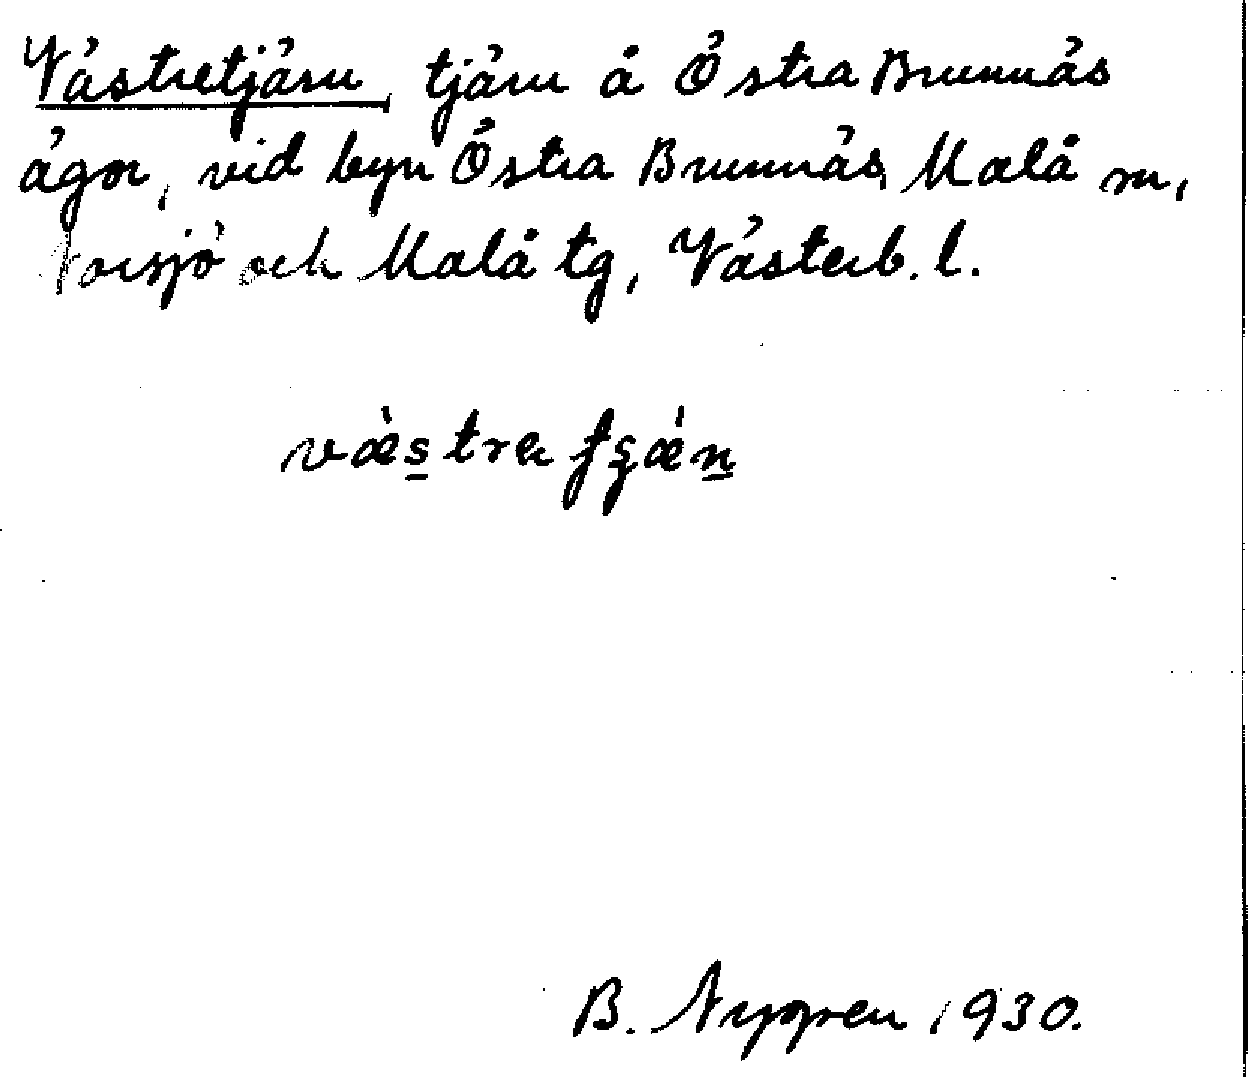 Västretjärn, tjärn å Östra Brunnäs
ägor, vid byn Östra Brunnäs, Malå sn,
Norsjö och Malå tg, Västerb. l.
B. Nygren 1930.